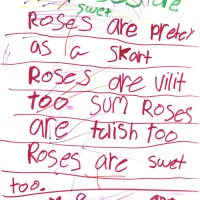 swet
Roses are preter
as a skart
Roses are vilit
too sum Roses
are twish too
Roses are swet
too.